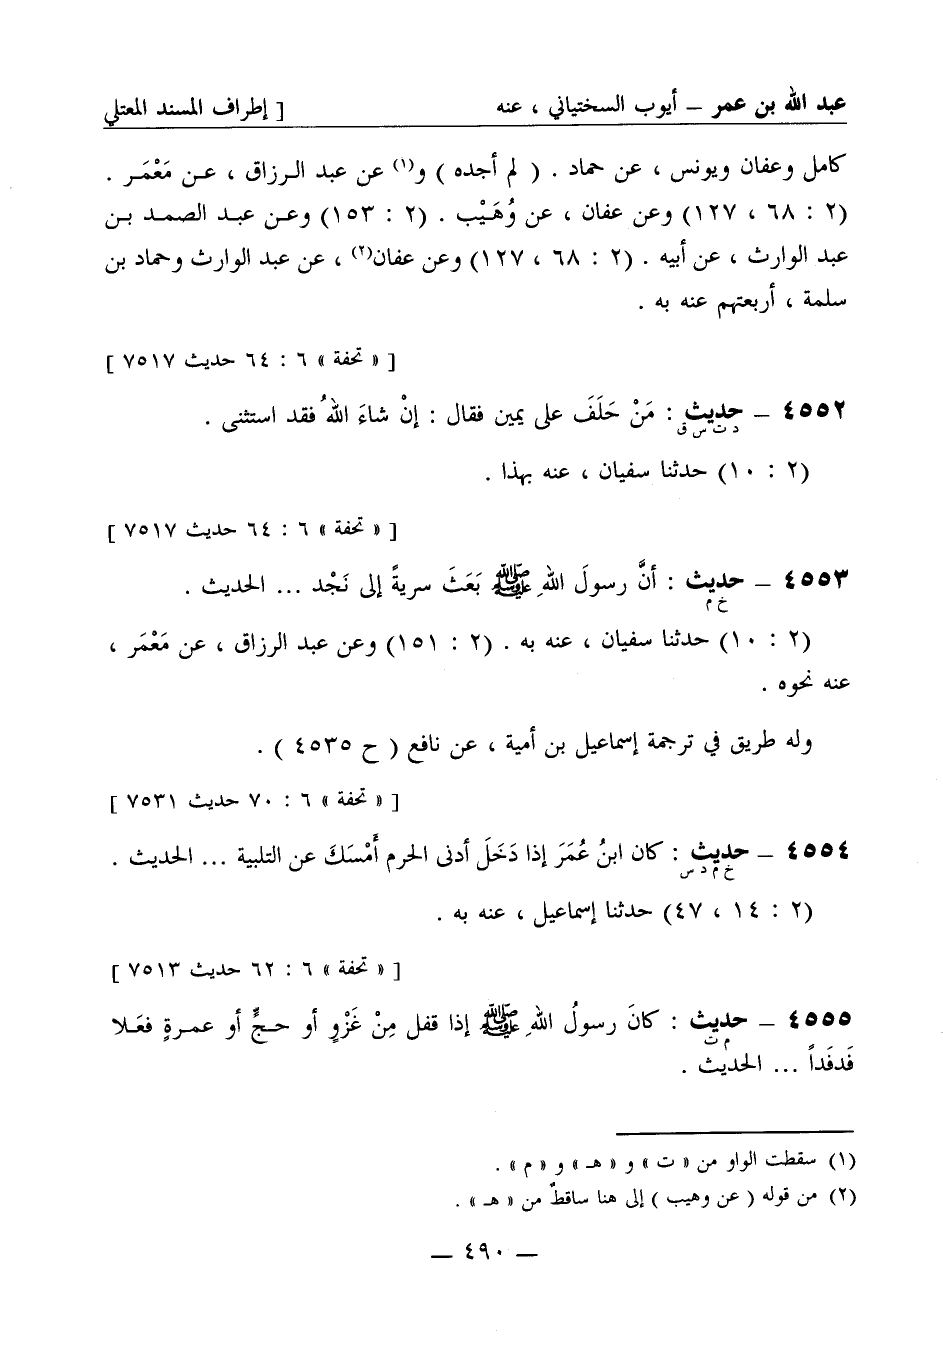 عبد الله بن عمر – أيوب السختياني ، عنه [ إطراف المسند المعتلي
كامل وعفان ويونس ، عن حماد . ( لم أجده ) و(١) عن عبد الرزاق ، عن مَعْمَر .
(٢ : ٦٨ ، ١٢٧) وعن عفان ، عن وُهَيْب . (٢ : ١٥٣) وعن عبد الصمد بن
عبد الوارث ، عن أبيه . (٢ : ٦٨ ، ١٢٧) وعن عفان(٢) ، عن عبد الوارث وحماد بن
سلمة ، أربعتهم عنه به .
[ « تحفة » ٦ : ٦٤ حديث ٧٥١٧ ]
٤٥٥٢ – حديث : مَنْ حَلَفَ على يمين فقال : إنْ شاءَ اللهُ فقد استثنى .
د ت س ق
(٢ : ١٠) حدثنا سفيان ، عنه بهذا .
[ « تحفة » ٦ : ٦٤ حديث ٧٥١٧ ]
٤٥٥٣ – حديث : أنَّ رسولَ اللهِ ﷺ بَعَثَ سريةً إلى نَجْد ... الحديث .
خ م
(٢ : ١٠) حدثنا سفيان ، عنه به . (٢ : ١٥١) وعن عبد الرزاق ، عن مَعْمَر ،
عنه نحوه .
وله طريق في ترجمة إسماعيل بن أمية ، عن نافع ( ح ٤٥٣٥ ) .
[ « تحفة » ٦ : ٧٠ حديث ٧٥٣١ ]
٤٥٥٤ – حديث : كان ابنُ عُمَرَ إذا دَخَلَ أدنى الحرم أَمْسَكَ عن التلبية ... الحديث .
خ م د س
(٢ : ١٤ ، ٤٧) حدثنا إسماعيل ، عنه به .
[ « تحفة » ٦ : ٦٢ حديث ٧٥١٣ ]
٤٥٥٥ – حديث : كانَ رسولُ اللهِ ﷺ إذا قفل مِنْ غَزْوٍ أو حجٍّ أو عمرةٍ فعَلا
م ت
فَدفَداً ... الحديث .
(١) سقطت الواو من « ت » و « هـ » و « م » .
(٢) من قوله ( عن وهيب ) إلى هنا ساقطٌ من « هـ » .
– ٤٩٠ –